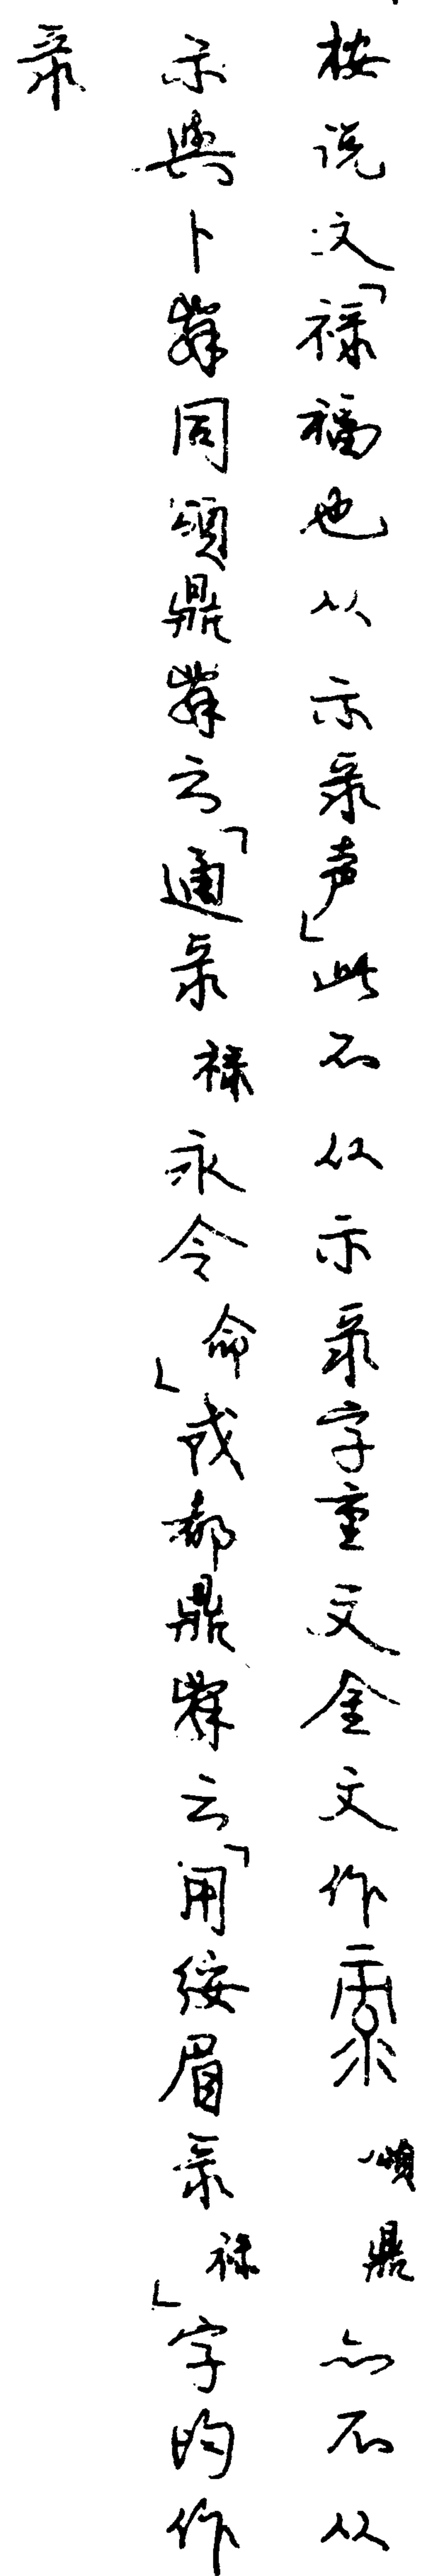 按说文「禄福也从示彔声」此不从示彔字重文金文作頌鼎亦不从
示與卜辞同頌鼎辞云「通彔禄永令命」或都鼎辞云「用绥眉彔禄」字的作
彔